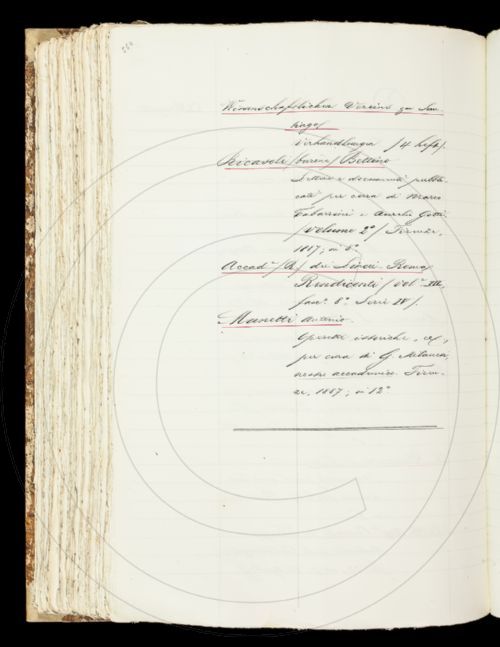 Wissenschaftlicher Vereins zu San-
tiago
Verhandlungen (4 heft).
Ricasoli (barone) Bettino
Lettere e documenti pubbli-
cati per cura di Marco
Tabarrini e Aurelio Gotti
(Volume 2º) Firenze,
1887; in 8º
Accadª (R) dei Lincei. Roma
Rendiconti (vol. III,
fasc. 8º Serie IVª).
Manetti Antonio.
Operette istoriche,
per cura di G. Milanesi
accademico. Firen-
ze, 1887; in 12º